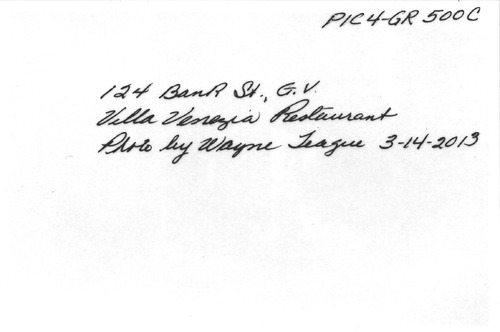 PIC4-GR 500C
124 Bank St., G.V.
Villa Venezia Restaurant
Photo by Wayne Teague 3-14-2013